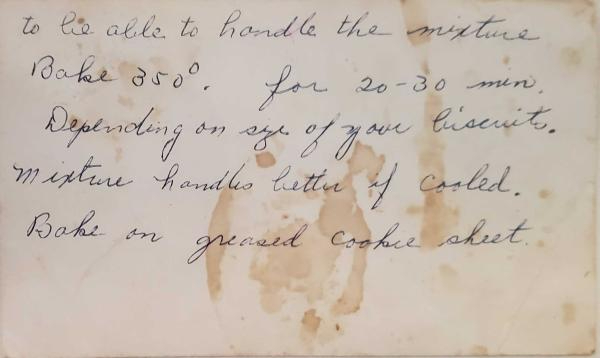 to be able to handle the mixture
Bake 350°. for 20-30 min.
Depending on sze of your biscuits.
Mixture handles better if cooled.
Bake on greased cookie sheet.